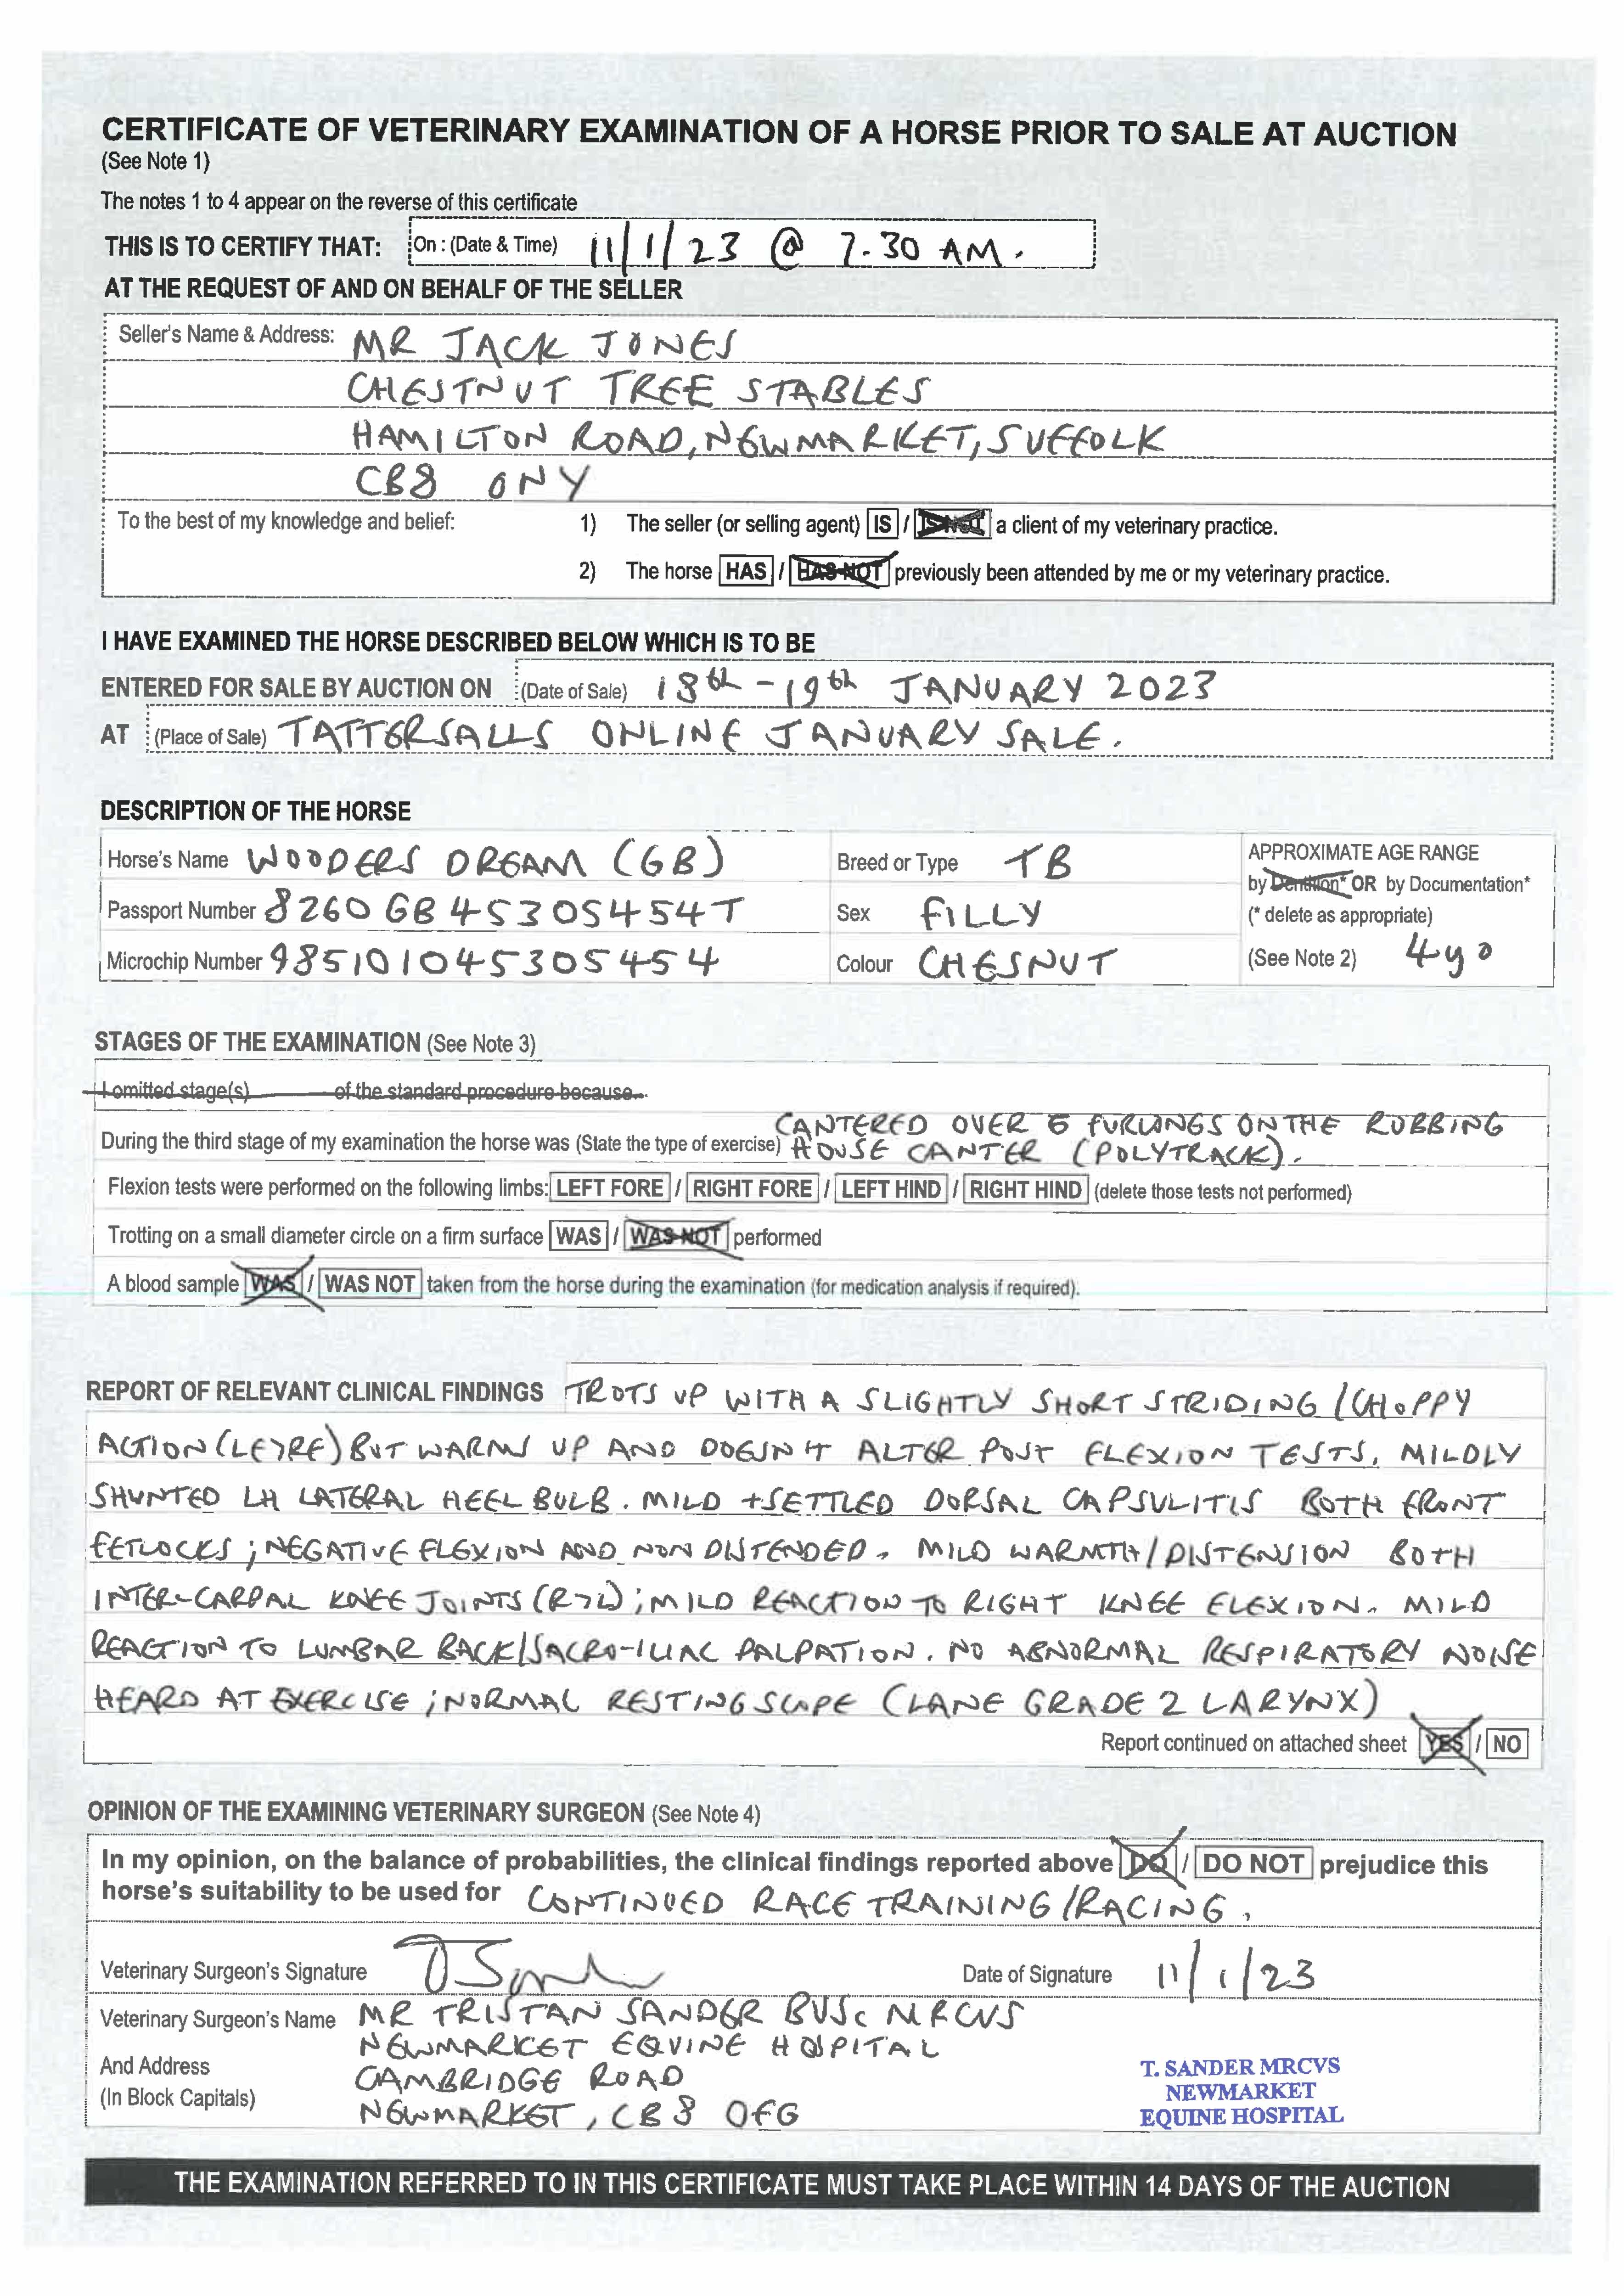 CERTIFICATE OF VETERINARY EXAMINATION OF A HORSE PRIOR TO SALE AT AUCTION
(See Note 1)
The notes 1 to 4 appear on the reverse of this certificate
THIS IS TO CERTIFY THAT: On : (Date & Time) 11/1/23 @ 7.30 AM.
AT THE REQUEST OF AND ON BEHALF OF THE SELLER
Seller's Name & Address: MR JACK JONES
CHESTNUT TREE STABLES
HAMILTON ROAD, NEWMARKET, SUFFOLK
CB8 0NY
To the best of my knowledge and belief: 1) The seller (or selling agent) IS / IS NOT a client of my veterinary practice.
2) The horse HAS / HAS NOT previously been attended by me or my veterinary practice.
I HAVE EXAMINED THE HORSE DESCRIBED BELOW WHICH IS TO BE
ENTERED FOR SALE BY AUCTION ON (Date of Sale) 18th - 19th JANUARY 2023
AT (Place of Sale) TATTERSALLS ONLINE JANUARY SALE.
DESCRIPTION OF THE HORSE
Horse's Name WOODERS DREAM (GB) Breed or Type TB APPROXIMATE AGE RANGE
by Dentition* OR by Documentation*
Passport Number 8260GB45305454T Sex FILLY (* delete as appropriate)
Microchip Number 985101045305454 Colour CHESNUT (See Note 2) 4yo
STAGES OF THE EXAMINATION (See Note 3)
I omitted stage(s) of the standard procedure because
During the third stage of my examination the horse was (State the type of exercise) CANTERED OVER 6 FURLONGS ON THE RUBBING
HOUSE CANTER (POLYTRACK).
Flexion tests were performed on the following limbs: LEFT FORE / RIGHT FORE / LEFT HIND / RIGHT HIND (delete those tests not performed)
Trotting on a small diameter circle on a firm surface WAS / WAS NOT performed
A blood sample WAS / WAS NOT taken from the horse during the examination (for medication analysis if required).
REPORT OF RELEVANT CLINICAL FINDINGS TROTS UP WITH A SLIGHTLY SHORT STRIDING /CHOPPY
ACTION (LF>RF) BUT WARMS UP AND DOESN'T ALTER POST FLEXION TESTS. MILDLY
SHUNTED LH LATERAL HEEL BULB. MILD + SETTLED DORSAL CAPSULITIS BOTH FRONT
FETLOCKS ; NEGATIVE FLEXION AND NON DISTENDED. MILD WARMTH/DISTENSION BOTH
INTER-CARPAL KNEE JOINTS (R>L) ; MILD REACTION TO RIGHT KNEE FLEXION. MILD
REACTION TO LUMBAR BACK/SACRO-ILIAC PALPATION. NO ABNORMAL RESPIRATORY NOISE
HEARD AT EXERCISE ; NORMAL RESTING SCOPE (LANE GRADE 2 LARYNX)
Report continued on attached sheet YES / NO
OPINION OF THE EXAMINING VETERINARY SURGEON (See Note 4)
In my opinion, on the balance of probabilities, the clinical findings reported above DO / DO NOT prejudice this
horse's suitability to be used for CONTINUED RACE TRAINING/RACING.
Veterinary Surgeon's Signature Date of Signature 11/1/23
Veterinary Surgeon's Name MR TRISTAN SANDER BVSc MRCVS
NEWMARKET EQUINE HOSPITAL
And Address CAMBRIDGE ROAD
(In Block Capitals) NEWMARKET, CB8 0FG
T. SANDER MRCVS
NEWMARKET
EQUINE HOSPITAL
THE EXAMINATION REFERRED TO IN THIS CERTIFICATE MUST TAKE PLACE WITHIN 14 DAYS OF THE AUCTION